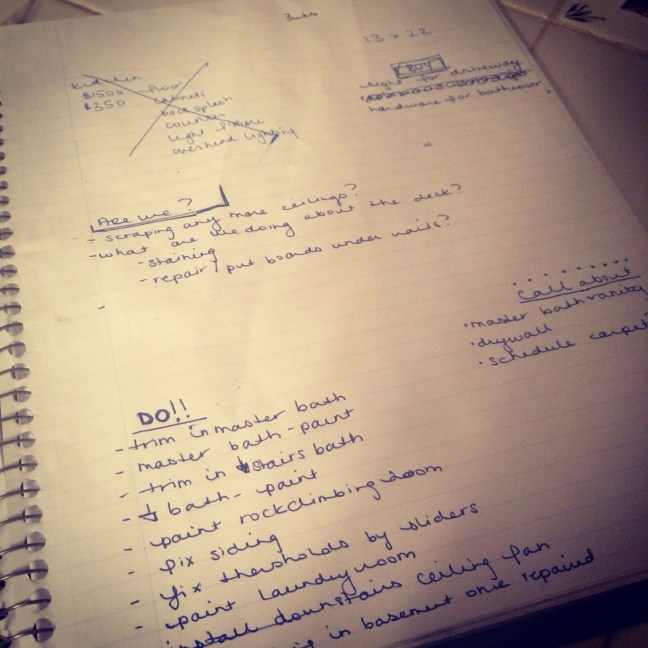 13 x 22
BUY
light for driveway
hardware for bathroom
kitchen
$1500 floor
$350 cabinets
back splash
counter
light fixture
overhead lighting
Are we?
- scraping any more ceilings?
- what are we doing about the deck?
- staining
- repair / put boards under nails?
-
Call about
• master bath vanity
• drywall
• schedule carpet
DO!!
- trim in master bath
- master bath - paint
- trim in ↓stairs bath
- ↓ bath - paint
- paint rockclimbing room
- fix siding
- fix thresholds by sliders
- paint laundry room
install downstairs ceiling fan
in basement one repaired